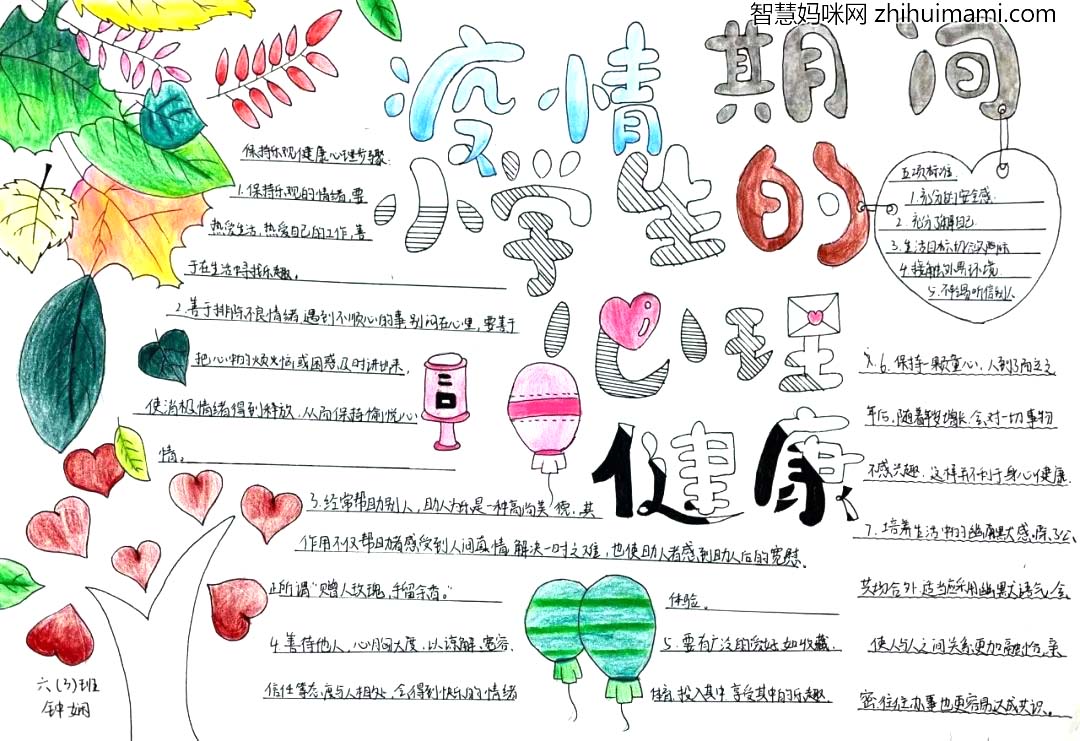 智慧妈咪网 zhihuimami.com
疫情期间
小学生的
心理
健康
保持乐观健康心理步骤
1.保持乐观的情绪,要
热爱生活,热爱自己的工作,善
于在生活中寻找乐趣。
2.善于排除不良情绪,遇到不顺心的事,别闷在心里,要善于
把心中的烦恼或困惑及时讲出来,
使消极情绪得到释放,从而保持愉悦心
情。
3.经常帮助别人,助人为乐是一种高尚美德,其
作用不仅帮助者感受到人间真情,解决一时之难,也使助人者感到助人后的宽慰。
正所谓“赠人玫瑰,手留余香。”
4.善待他人,心胸大度,以谅解、宽容、
信任等态度与人相处,会得到快乐的情绪
体验。
5.要有广泛的爱好,如收藏
投入其中,享受其中的乐趣
6.保持一颗童心,人到了而立之
年后,随着年龄增长,会对一切事物
不感兴趣,这样并不利于身心健康.
7.培养生活中的幽默大感,除了公
共场合外,适当采用幽默大语气,会
使人与人之间关系更加融洽,亲
密,往往办事也更容易达成共识。
五项标准
1.充分的安全感.
2.充分了解自己
3.生活目标切合实际
4.接触外界环境.
5.不轻易听信别人
六(3)班
钟娴